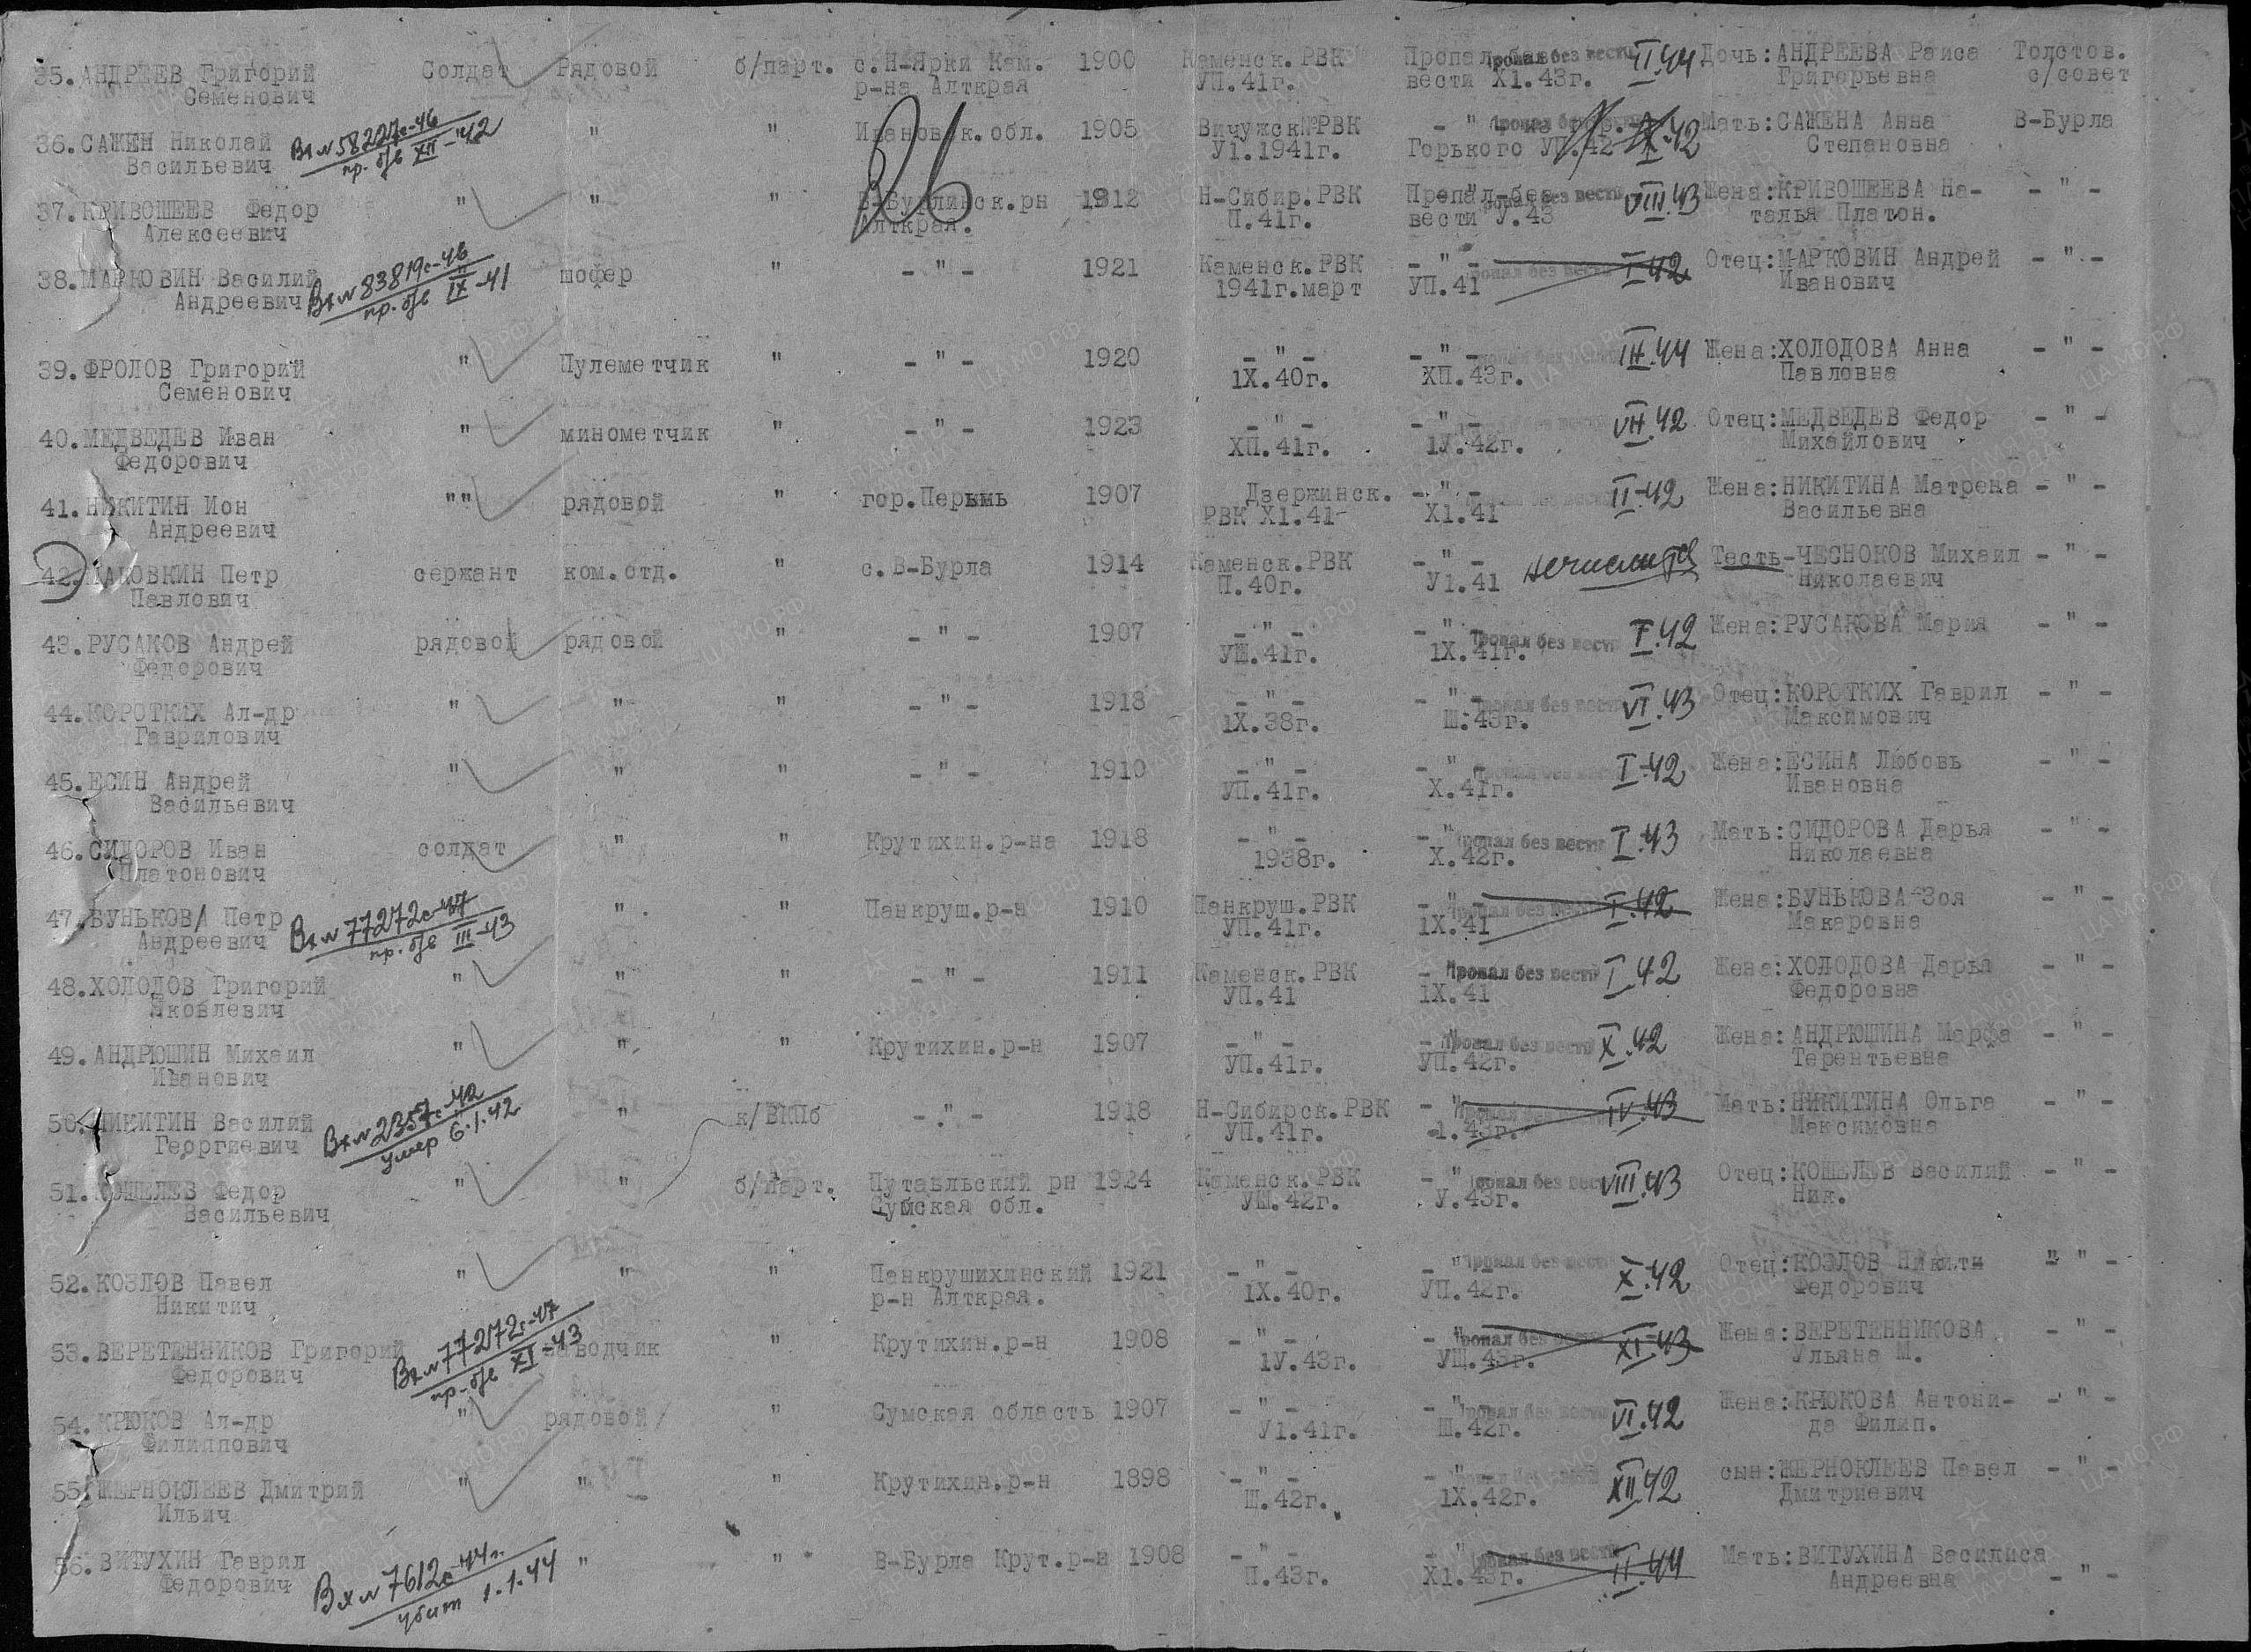 35. АНДРЕЕВ Григорий Солдат Рядовой б/парт. с.Н-Ярки Кам. 1900 Каменск.РВК Пропал без Пропал без вести II.44 Дочь: АНДРЕЕВА Раиса Толстов.
Семенович р-на Алткрая УП.41г. вести Х1.43г. Григорьевна с/совет
36. САЖЕН Николай Вх№58227с-46 " " Ивановск.обл. 1905 Вичужск РВК - " - Мать: САЖЕНА Анна В-Бурла
Васильевич пр. б/в XII-42 У1.1941г. Горького УП.42 Степановна
26
37. КРИВОШЕЕВ Федор " " " В-Бурлинск.рн 1912 Н-Сибир.РВК Пропал без VIII.43 Жена: КРИВОШЕЕВА На- - " -
Алексеевич Алткрая. П.41г. вести У.43 талья Платон.
38. МАРКОВИН Василий Вх№83819с-46 шофер " - " - 1921 Каменск.РВК - " - I-42 Отец: МАРКОВИН Андрей - " -
Андреевич пр. б/в IX-41 1941г.март УП.41 Иванович
39. ФРОЛОВ Григорий " Пулеметчик " - " - 1920 - " - - " - III.44 Жена: ХОЛОДОВА Анна - " -
Семенович 1Х.40г. ХП.43г. Павловна
40. МЕДВЕДЕВ Иван " минометчик " - " - 1923 - " - - " - VII.42 Отец: МЕДВЕДЕВ Федор - " -
Федорович ХП.41г. 1У.42г. Михайлович
41. НИКИТИН Ион "" рядовой " гор.Пермь 1907 Дзержинск. - " - II-42 Жена: НИКИТИНА Матрена - " -
Андреевич РВК Х1.41 Х1.41 Васильевна
42. МАКОВКИН Петр сержант ком.отд. " с.В-Бурла 1914 Каменск.РВК - " - Тесть-ЧЕСНОКОВ Михаил - " -
Павлович П.40г. У1.41 Николаевич
43. РУСАКОВ Андрей рядовой рядовой " - " - 1907 - " - - " - Пропал без вести I.42 Жена: РУСАКОВА Мария - " -
Федорович УШ.41г. 1Х.41г.
44. КОРОТКИХ Ал-др " " " - " - 1918 - " - - " - VI.43 Отец: КОРОТКИХ Гаврил - " -
Гаврилович 1Х.38г. Ш.43г. Максимович
45. ЕСИН Андрей " " " - " - 1910 - " - - " - I-42 Жена: ЕСИНА Любовь - " -
Васильевич УП.41г. Х.41г. Ивановна
46. СИДОРОВ Иван солдат " " Крутихин.р-на 1918 - " - - " - Пропал без вести I.43 Мать: СИДОРОВА Дарья - " -
Платонович 1938г. Х.42г. Николаевна
47. БУНЬКОВ Петр Вх№77272с-47 " " Панкруш.р-н 1910 Панкруш.РВК - " - I.42 Жена: БУНЬКОВА Зоя - " -
Андреевич пр. б/в III-43 УП.41г. 1Х.41 Макаровна
48. ХОЛОДОВ Григорий " " " - " - 1911 Каменск.РВК - Пропал без вести I.42 Жена: ХОЛОДОВА Дарья - " -
Яковлевич УП.41 1Х.41 Федоровна
49. АНДРЮШИН Михаил " " " Крутихин.р-н 1907 - " - - Пропал без вести X.42 Жена: АНДРЮШИНА Марфа - " -
Иванович УП.41г. УП.42г. Терентьевна
50. НИКИТИН Василий Вх№2357с-42 " к/ВКПб - " - 1918 Н-Сибирск.РВК - " IV.43 Мать: НИКИТИНА Ольга - " -
Георгиевич умер 6.1.42 УП.41г. 1.43г. Максимовна
51. КОШЕЛЕВ Федор " " б/парт. Путавльский рн 1924 Каменск.РВК - " Пропал без вести VIII.43 Отец: КОШЕЛЕВ Василий - " -
Васильевич Сумская обл. УШ.42г. У.43г. Ник.
52. КОЗЛОВ Павел " " " Панкрушихинский 1921 - " - - " - Пропал без вести X.42 Отец: КОЗЛОВ Никити " " -
Никитич р-н Алткрая. 1Х.40г. УП.42г. Федорович
53. ВЕРЕТЕННИКОВ Григорий Вх№77272с-47 наводчик " Крутихин.р-н 1908 - " - - " Пропал без XI-43 Жена: ВЕРЕТЕННИКОВА - " -
Федорович пр-б/в XI-43 1У.43г. УШ.43г. Ульяна М.
54. КРЮКОВ Ал-др " рядовой " Сумская область 1907 - " - - " Пропал без вести VI.42 Жена: КРЮКОВА Антони- - " -
Филиппович У1.41г. Ш.42г. да Филип.
55. ЖЕРНОКЛЕЕВ Дмитрий " " " Крутихин.р-н 1898 - " - - " - XII.42 сын: ЖЕРНОКЛЕЕВ Павел - " -
Ильич Ш.42г. 1Х.42г. Дмитриевич
56. ВИТУХИН Гаврил Вх№7612с-44г. " " В-Бурла Крут.р-н 1908 - " - - " Пропал без вести II.44 Мать: ВИТУХИНА Василиса
Федорович убит 1.1.44 П.43г. Х1.43г. Андреевна - " -